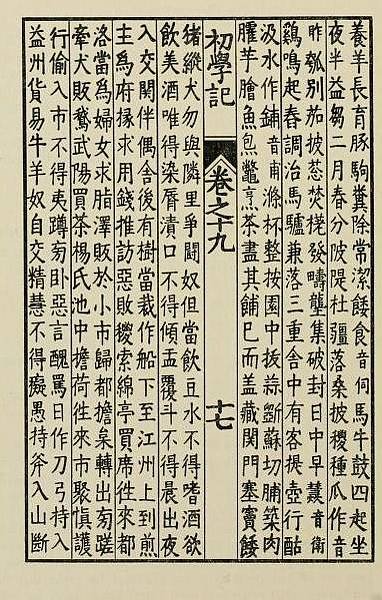 養羊長育豚駒糞除常潔餧食音伺馬牛鼓四起坐
夜半益芻二月春分陂隄杜疆落桑披稯種瓜作音
昨瓠別茄披葱焚槎發疇壟集破封日中早音衛
鷄鳴起舂調治馬驢兼落三重舍中有客提壺行酤
汲水作餔音甫滌杯整按園中拔蒜斷蘇切脯築肉
臛芋膾魚炰鼈烹茶盡其餔巳而盖藏関門塞竇餧
初學記 卷之十九 十七
猪縱犬勿與隣里爭鬭奴但當飲豆水不得嗜酒欲
飲美酒唯得染脣漬口不得傾盂覆斗不得晨出夜
入交関伴偶舍後有樹當裁作船下至江州上到煎
主爲府掾求用錢推訪惡敗稯索綿亭買席徃來都
洛當爲婦女求脂澤販於小市歸都擔枲轉出旁蹉
牽犬販鵞武陽買茶楊氏池中擔荷徃來市聚愼護
行偷入市不得夷蹲旁卧惡言醜罵日作刀弓持入
益州貨易牛羊奴自交精慧不得癡愚持斧入山斷